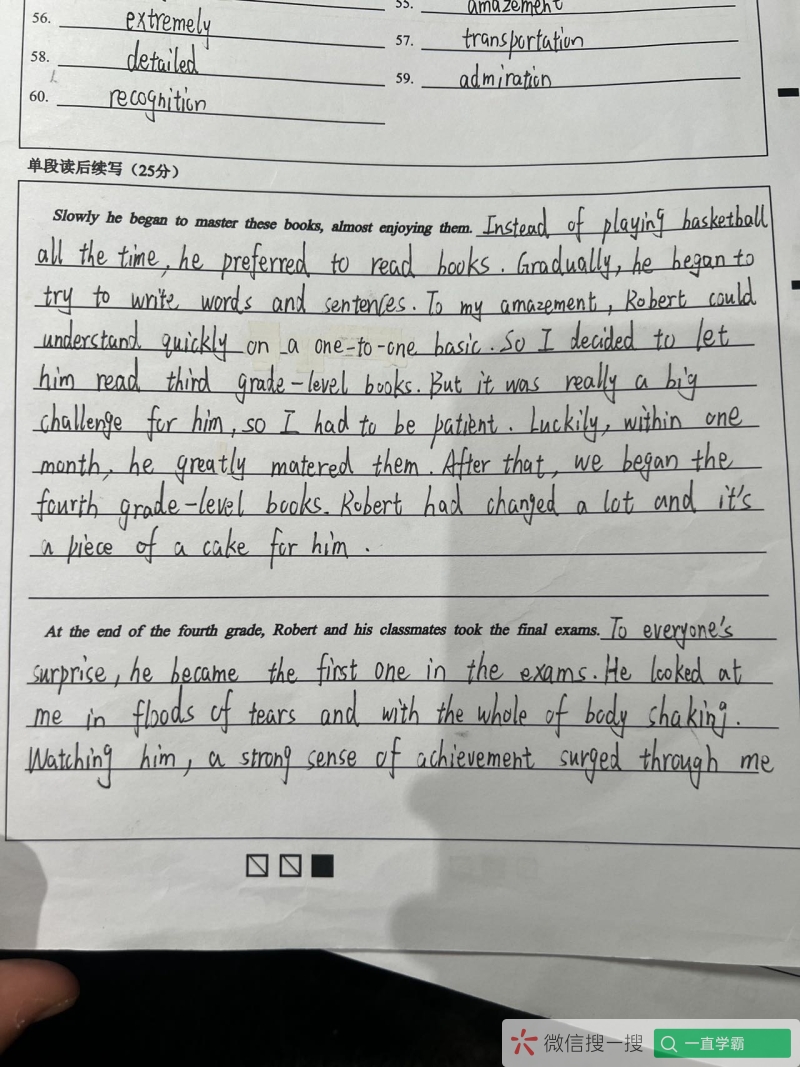 55. amazement
56. extremely
57. transportation
58. detailed
59. admiration
60. recognition
单段读后续写（25分）
Slowly he began to master these books, almost enjoying them. Instead of playing basketball
all the time, he preferred to read books. Gradually, he began to
try to write words and sentences. To my amazement, Robert could
understand quickly on a one-to-one basic. So I decided to let
him read third grade-level books. But it was really a big
challenge for him, so I had to be patient. Luckily, within one
month, he greatly matered them. After that, we began the
fourth grade-level books. Robert had changed a lot and it's
a piece of a cake for him.
At the end of the fourth grade, Robert and his classmates took the final exams. To everyone's
surprise, he became the first one in the exams. He looked at
me in floods of tears and with the whole of body shaking.
Watching him, a strong sense of achievement surged through me
微信搜一搜 一直学霸